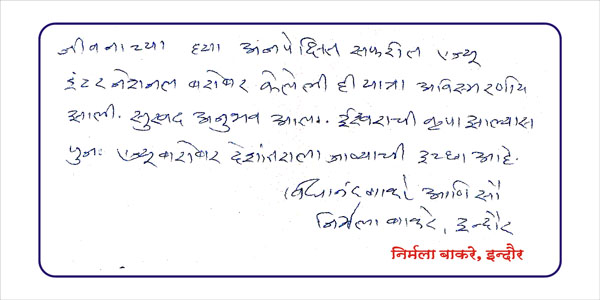 जीवनाच्या ह्या अनपेक्षित सफरीत एज्यू
इंटरनेशनल बरोबर केलेली ही यात्रा अविस्मरणीय
झाली. सुखद अनुभव आला. ईश्वराची कृपा झाल्यास
पुनः एज्यू बरोबर देशांतराला जाण्याची इच्छा आहे.
विद्यानंद बाकरे आणि सौ
निर्मला बाकरे, इन्दौर
निर्मला बाकरे, इन्दौर